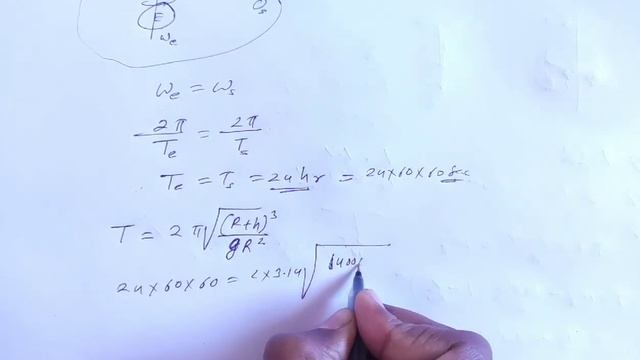 E
ω_e
O_s
ω_e = ω_s
2π/T_e = 2π/T_s
T_e = T_s = 24 hr = 24×60×60 sec
T = 2π√((R+h)³/gR²)
24×60×60 = 2×3.14√(6400